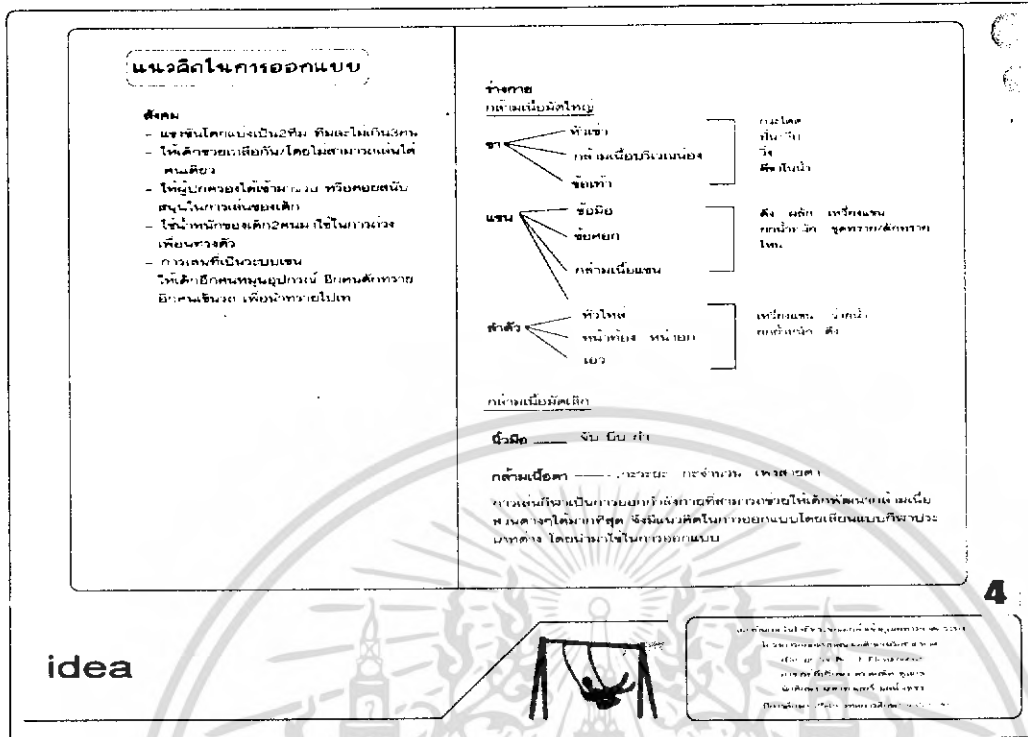 แนวคิดในการออกแบบ
สังคม
- แข่งขันโดยแบ่งเป็น2ทีม ทีมละไม่เกิน3คน
- ให้เด็กช่วยเหลือกัน/โดยไม่สามารถเล่นได้
คนเดียว
- ให้ผู้ปกครองได้เข้ามาร่วม หรือคอยสนับ
สนุนในการเล่นของเด็ก
- ใช้น้ำหนักของเด็ก2คนมาใช้ในการถ่วง
เพื่อนทรงตัว
- การเล่นที่เป็นระบบเช่น
ให้เด็กอีกคนหมุนอุปกรณ์ อีกคนตักทราย
อีกคนเข็นรถ เพื่อนำทรายไปเท
ร่างกาย
กล้ามเนื้อมัดใหญ่
ขา
หัวเข่า
กล้ามเนื้อบริเวณน่อง
ข้อเท้า
กระโดด
ปีน
วิ่ง
ตีขาในน้ำ
แขน
ข้อมือ
ข้อศอก
กล้ามเนื้อแขน
ดึง ผลัก เหวี่ยงแขน
ยกน้ำหนัก ขุดทราย/ตักทราย
โหน
ลำตัว
หัวไหล่
หน้าท้อง หน้าอก
เอว
เหวี่ยงแขน ว่ายน้ำ
ยกน้ำหนัก ดึง
กล้ามเนื้อมัดเล็ก
นิ้วมือ จับ บีบ กำ
กล้ามเนื้อตา กะระยะ กะจำนวน เพ่งสายตา
การเล่นกีฬาเป็นการออกกำลังกายที่สามารถช่วยให้เด็กพัฒนากล้ามเนื้อ
ส่วนต่างๆได้มากที่สุด จึงมีแนวคิดในการออกแบบโดยเลียนแบบกีฬาประ
เภทต่าง โดยนำมาใช้ในการออกแบบ
4
idea